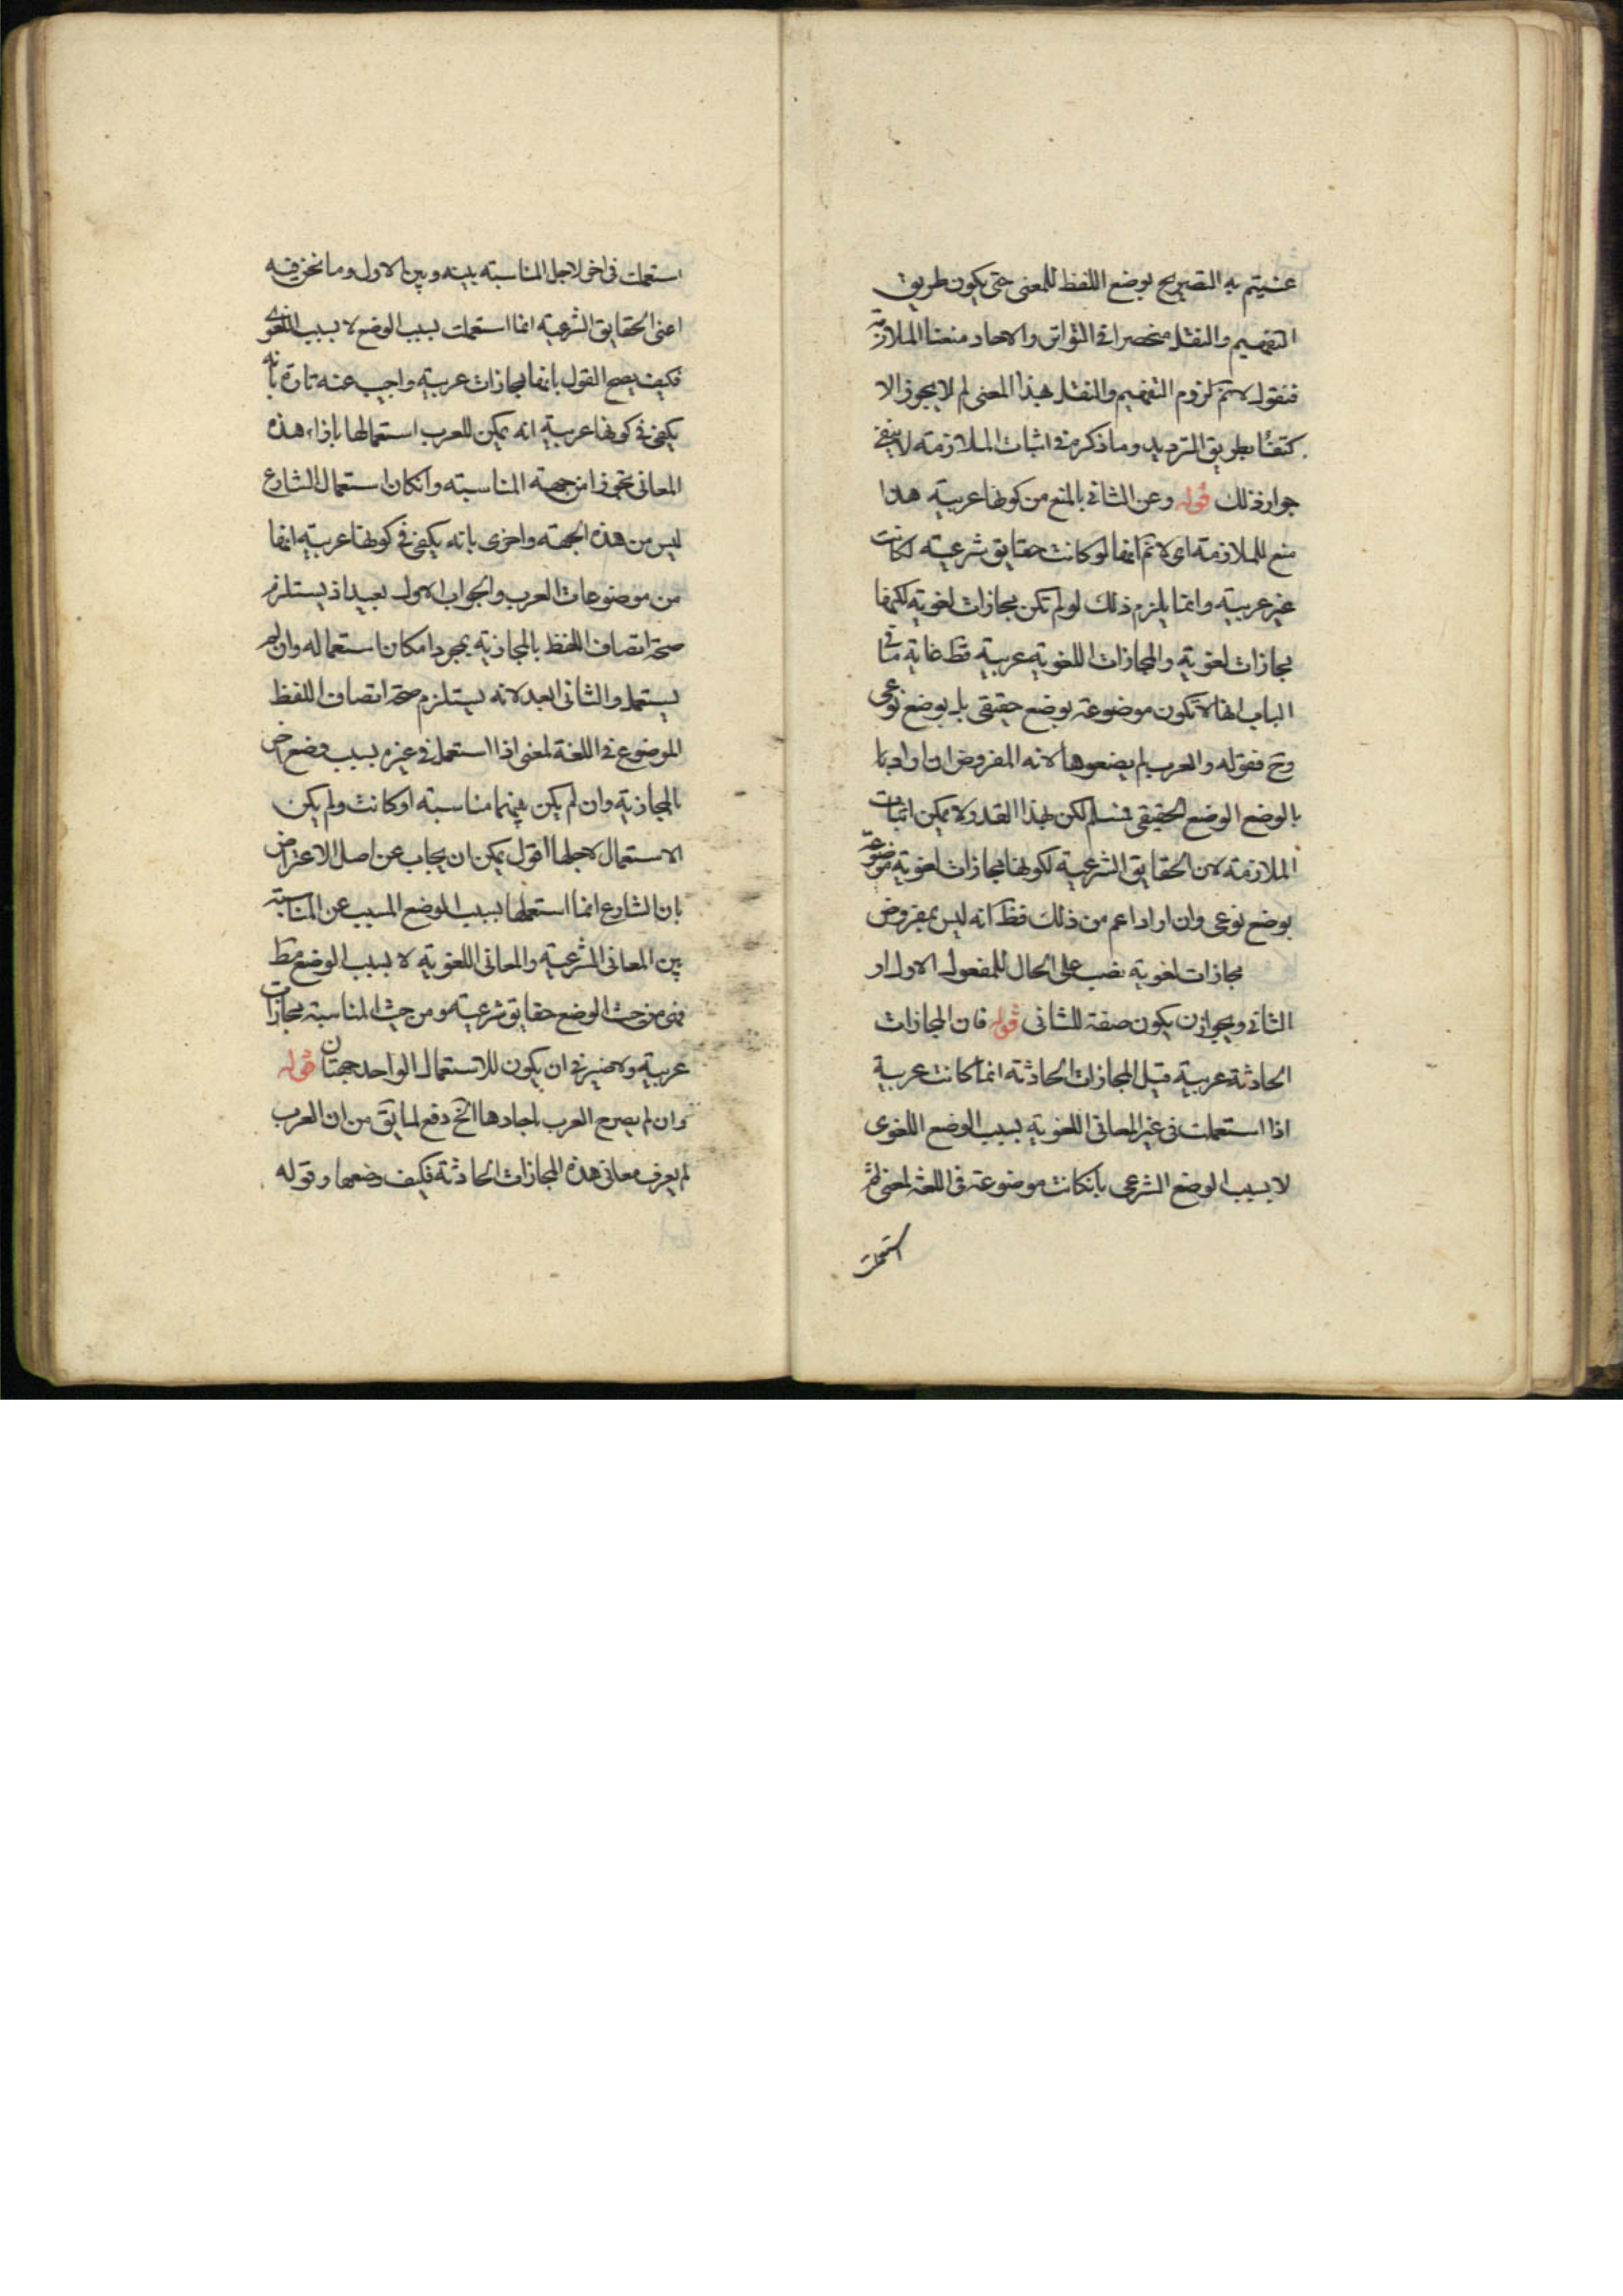 عنيتم به التصريح بوضع اللفظ للمعنى حتى يكون طريق
التفهيم والنقل منحصرا فى التواتر والاحاد منعنا الملازمة
فنقول لانم لزوم التفهيم والنقل بهذا المعنى لم لا يجوز الا
كتفاء بطريق الترديد وما ذكر فى اثبات الملازمة لا ينفى
جواز ذلك قوله وعن الثانى بالمنع من كونها عربية هذا
منع للملازمة اى لانم انها لو كانت حقايق شرعية لكانت
غير عربية وانما يلزم ذلك لو لم تكن مجازات لغوية لكنها
مجازات لغوية والمجازات اللغوية عربية قط غاية ما فى
الباب انها لا تكون موضوعة بوضع حقيقى بل بوضع نوعى
وح فقوله والعرب لم يضعوها لانه المفروض ان اراد بها
بالوضع الوضع الحقيقى فمسلم لكن بهذا القدر لا يمكن اثبات
الملازمة لان الحقايق الشرعية لكونها مجازات لغوية موضوعة
بوضع نوعى وان اراد اعم من ذلك فظ انه ليس بمفروض
مجازات لغوية نصب على الحال للمفعول الاول او
الثانى ويجوز ان يكون صفة للثانى قوله فان المجازات
الحادثة عربية قيل المجازات الحادثة انما كانت عربية
اذا استعملت فى غير المعانى اللغوية بسبب الوضع اللغوى
لا بسبب الوضع الشرعى بان كانت موضوعة فى اللغة لمعنى ثم
استعملت
استعملت فى اخر لاجل المناسبة بينه وبين الاول وما نحن فيه
اعنى الحقايق الشرعية انما استعملت بسبب الوضع لا بسبب اللغوى
فكيف يصح القول بانها مجازات عربية واجيب عنه تارة بانه
يكفى فى كونها عربية انه يمكن للعرب استعمالها بازاء هذه
المعانى تجوزا من جهة المناسبة وان كان استعمال الشارع
ليس من هذه الجهة واخرى بانه يكفى فى كونها عربية انها
من موضوعات العرب والجواب الاول بعيد اذ يستلزم
صحة اتصاف اللفظ بالمجازية بمجرد امكان استعماله وان لم
يستعمل والثانى ابعد لانه يستلزم صحة اتصاف اللفظ
الموضوع فى اللغة لمعنى اذا استعمل فى غيره بسبب وضع اخر
بالمجازية وان لم يكن بينهما مناسبة او كانت ولم يكن
الاستعمال لاجلها اقول يمكن ان يجاب عن اصل الاعتراض
بان الشارع انما استعملها بسبب الوضع المسبب عن المناسبة
بين المعانى الشرعية والمعانى اللغوية لا بسبب الوضع فقط
فهى من حيث الوضع حقايق شرعية ومن حيث المناسبة مجازات
عربية ولا ضير فى ان يكون للاستعمال الواحد جهتان قوله
وان لم يصرح العرب باحادها الخ دفع لما يق من ان العرب
لم يعرف معانى هذه المجازات الحادثة فكيف وضعها وقوله